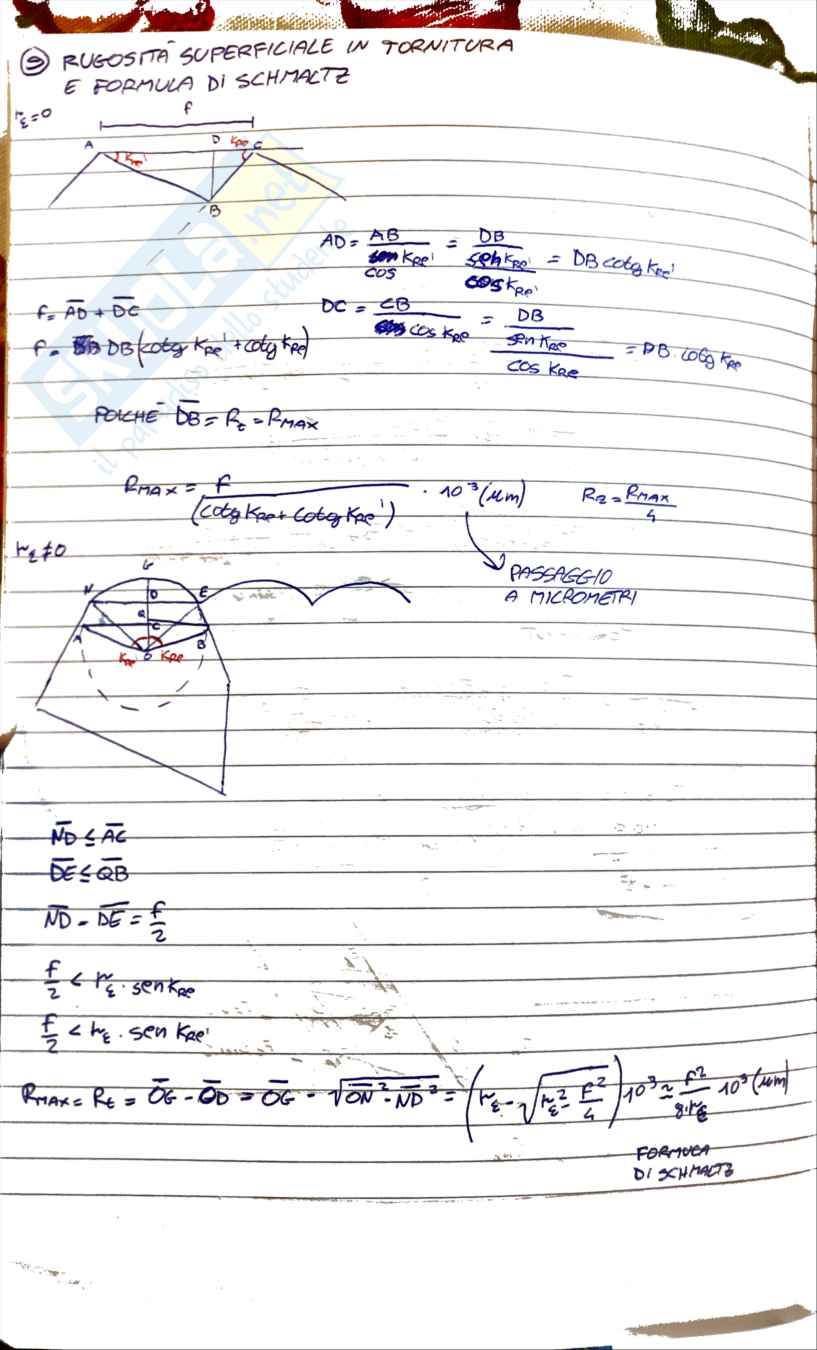 ⑨ RUGOSITÀ SUPERFICIALE IN TORNITURA
E FORMULA DI SCHMALTZ
rε=0
f
A D Kre C
Kre'
B
AD = AB / cos Kre' = DB / sen Kre' / cos Kre' = DB cotg Kre'
f = AD + DC
DC = CB / cos Kre = DB / sen Kre / cos Kre = DB · cotg Kre
f = DB (cotg Kre' + cotg Kre)
POICHÉ DB = Rt = RMAX
RMAX = f / (cotg Kre + cotg Kre') · 10⁻³ (μm) Ra = RMAX / 4
rε ≠ 0
PASSAGGIO
A MICROMETRI
G
N D E
Q
A C B
Kre' O Kre
ND ≤ AC
DE ≤ QB
ND = DE = f/2
f/2 < rε · sen Kre
f/2 < rε · sen Kre'
RMAX = Rt = OG - OD = OG - √(ON² - ND²) = (rε - √(rε² - f²/4)) 10³ ≃ f²/8·rε 10³ (μm)
FORMULA
DI SCHMALTZ
SKUOLA.net
il paradiso dello studente